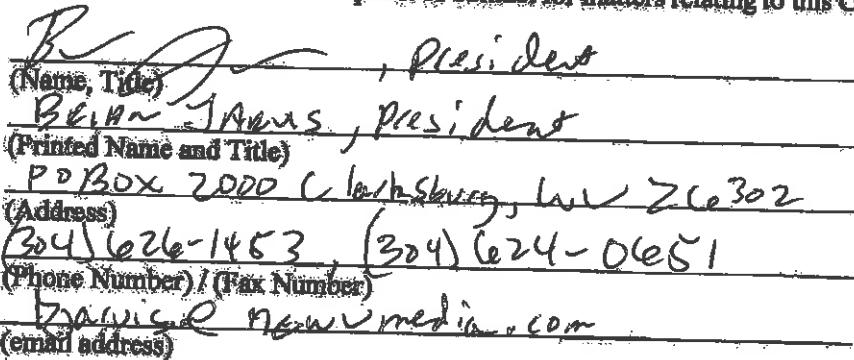 for matters relating to this C
, President
(Name, Title)
BRIAN JARVIS, President
(Printed Name and Title)
PO BOX 2000 Clarksburg, WV 26302
(Address)
(304) 626-1453, (304) 624-0651
(Phone Number) / (Fax Number)
bjarvis@newvmedia.com
(email address)